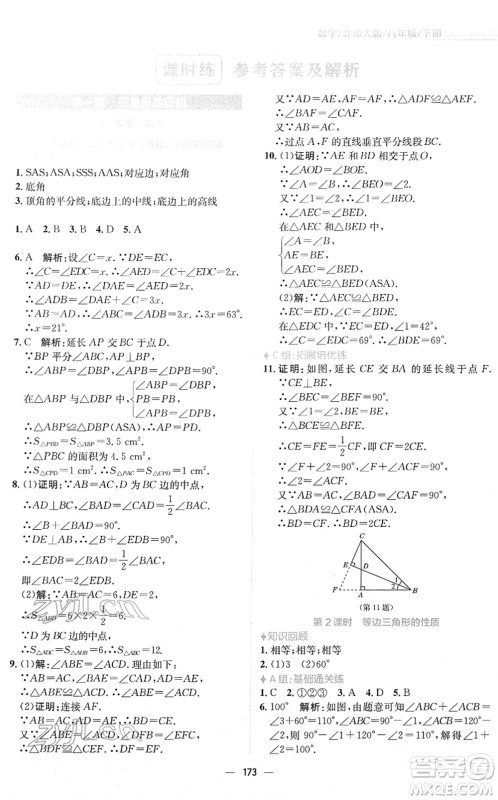 数学/北师大版/八年级/下册
课时练 参考答案及解析
1. SAS;ASA;SSS;AAS;对应边;对应角
2. 底角
3. 顶角的平分线;底边上的中线;底边上的高线
1. A 2. B 3. B 4. D 5. A
6. A 解析:设∠C=x. ∵DE=EC,
∴∠C=∠EDC=x.
∴∠AED=∠EDC+∠C=2x.
∵AD=DE, ∴∠AED=∠DAE=2x.
∴∠ADB=∠DAE+∠C=3x.
∵AB=AD, ∴∠ABC=∠ADB=3x=63°.
∴x=21°.
7. C 解析:延长 AP 交 BC 于点 D.
∵BP 平分∠ABC, ∴∠ABP=∠DBP.
∵AP⊥BP, ∴∠APB=∠DPB=90°.
在△ABP 与△DBP 中,
∠ABP=∠DBP,
PB=PB,
∠APB=∠DPB,
∴△ABP≌△DBP(ASA). ∴AP=PD.
∴S△DBP=S△ABP=3.5 cm².
∵△PBC 的面积为 4.5 cm²,
∴S△CPD=1 cm². ∴S△PAC=S△CPD=1 cm².
8. (1)证明:∵AB=AC,D为 BC 边的中点,
∴AD⊥BC,∠BAD=∠CAD=1/2∠BAC.
∴∠B+∠BAD=90°.
∵DE⊥AB, ∴∠EDB+∠B=90°.
∴∠EDB=∠BAD=1/2∠BAC.
(2)解:∵AB=6,DE=2,DE⊥AB,
∴S△ABD=6×2×1/2=6.
∵D 为 BC 边的中点,
∴S△ABC=2S△ABD=12.
9. (1)解:∠ABE=∠ACD. 理由如下:
在△ABE 和△ACD 中,
∵AB=AC,∠A=∠A,AE=AD,
∴△ABE≌△ACD. ∴∠ABE=∠ACD.
(2)证明:连接 AF.
∵AB=AC, ∴∠ABC=∠ACB.
由(1)可知∠ABE=∠ACD,
∴∠FBC=∠FCB. ∴FB=FC.
又∵AD=AE, ∴BD=CE.
又∵AB=AC,
∴点 A,F 均在线段 BC 的垂直平分线上.
∴过点 A,F 的直线垂直平分线段 BC.
10. (1)证明:∵AE 和 BD 相交于点 O,
∴∠AOD=∠BOE.
又∵∠A=∠B, ∴∠BEO=∠2.
又∵∠1=∠2, ∴∠1=∠BEO.
∴∠AEC=∠BED.
在△AEC 和△BED 中,
∠A=∠B,
AE=BE,
∠AEC=∠BED,
∴△AEC≌△BED(ASA).
(2)解:∵△AEC≌△BED,
∴EC=ED,∠C=∠BDE.
∵EC=ED,∠1=42°,
∴∠C=∠EDC=69°. ∴∠BDE=∠C=69°.
C 组:拓展培优练
11. 证明:如图,延长 CE 交 BA 的延长线于点 F.
∵CE⊥BD, ∴∠BEF=∠BEC=90°.
又∵∠1=∠2,BE=BE,
∴△BEF≌△BEC(ASA).
∴CE=FE=1/2CF. ∴CF=2CE.
∵∠1+∠F=∠ACF+∠F=90°,
∴∠1=∠ACF.
又∵AB=AC,∠BAD=∠CAF=90°,
∴△BDA≌△CFA(ASA).
∴BD=CF. ∴BD=2CE.
C
E
D
F A B
1
2
(第11题)
第2课时 等边三角形的性质
知识回顾
1. 相等;相等;相等
2. (1)3 (2)60°
A 组:基础通关练
1. C 2. ①②③ 3. A 4. D 5. A
6. 100° 解析:如图,由题意可知∠ABC=60°,
∴∠3+∠6=180°-60°=120°,
∠5+∠4=180°-∠BAC,
∠1+∠2=180°-∠BCA.
— 173 —
zyjl.cn